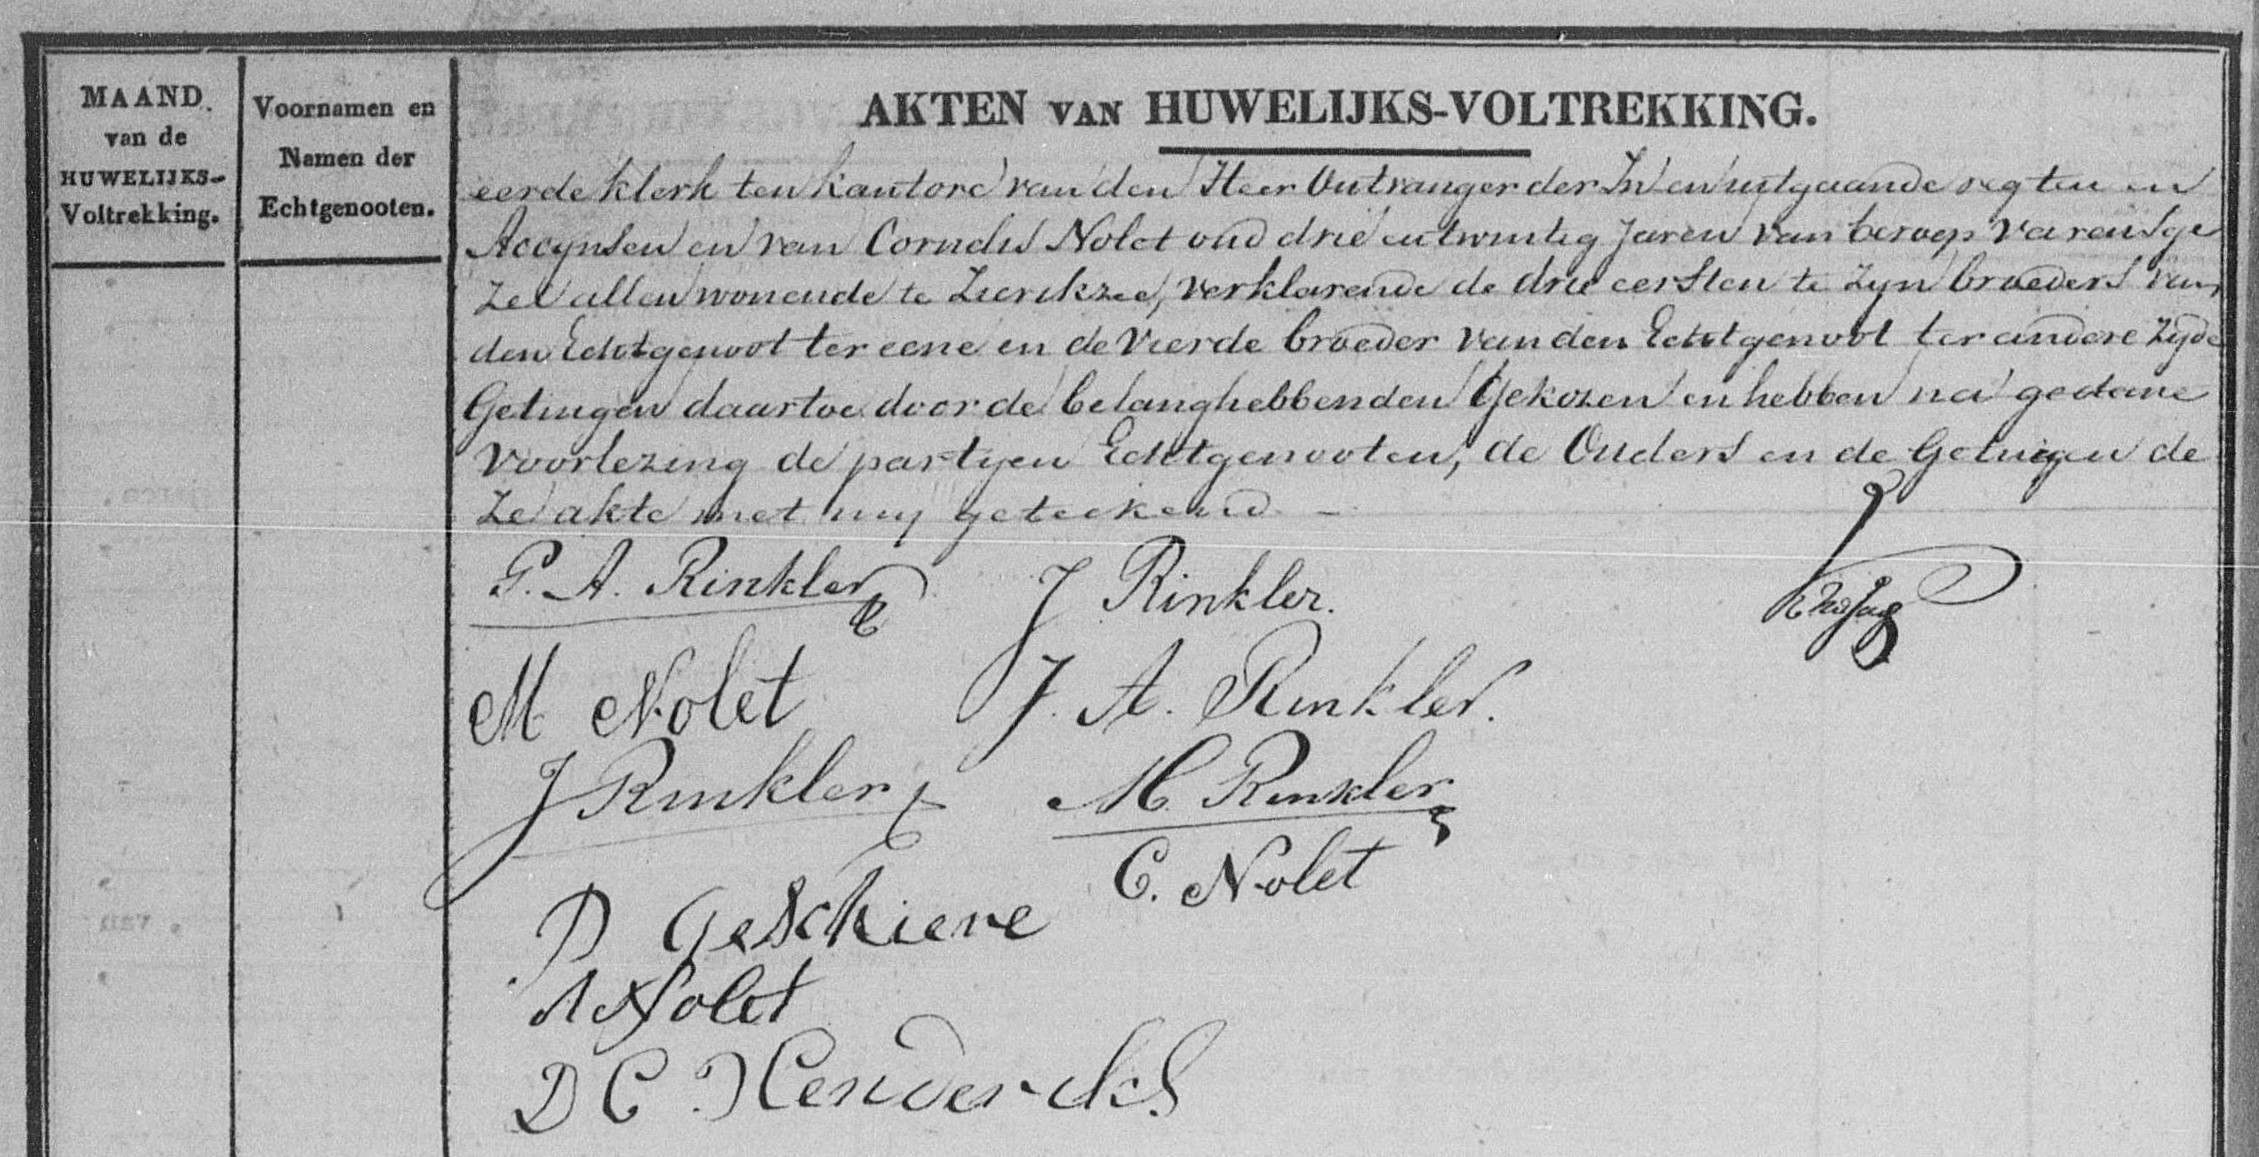 MAAND
van de
HUWELIJKS-
Voltrekking.
Voornamen en
Namen der
Echtgenooten.
AKTEN VAN HUWELIJKS-VOLTREKKING.
eerde klerk ten kantore van den Heer Ontvanger der In en uitgaande regten en
Accynsen en van Cornelis Nolet oud drie entwintig Jaren van beroep varensge
zel allen wonende te Zierikzee, verklarende de drie eersten te zyn broeders van
den Echtgenoot ter eene en de vierde broeder van den Echtgenoot ter andere zyde
Getuigen daartoe door de belanghebbenden Gekozen en hebben na gedane
voorlezing de partyen Echtgenooten, de Ouders en de Getuigen de
ze akte met my geteekend –
G. A. Rinkler J Rinkler.
M Nolet J. A. Rinkler.
J Rinkler M. Rinkler
C. Nolet
P Geschiere
A Nolet
D C Hendercks